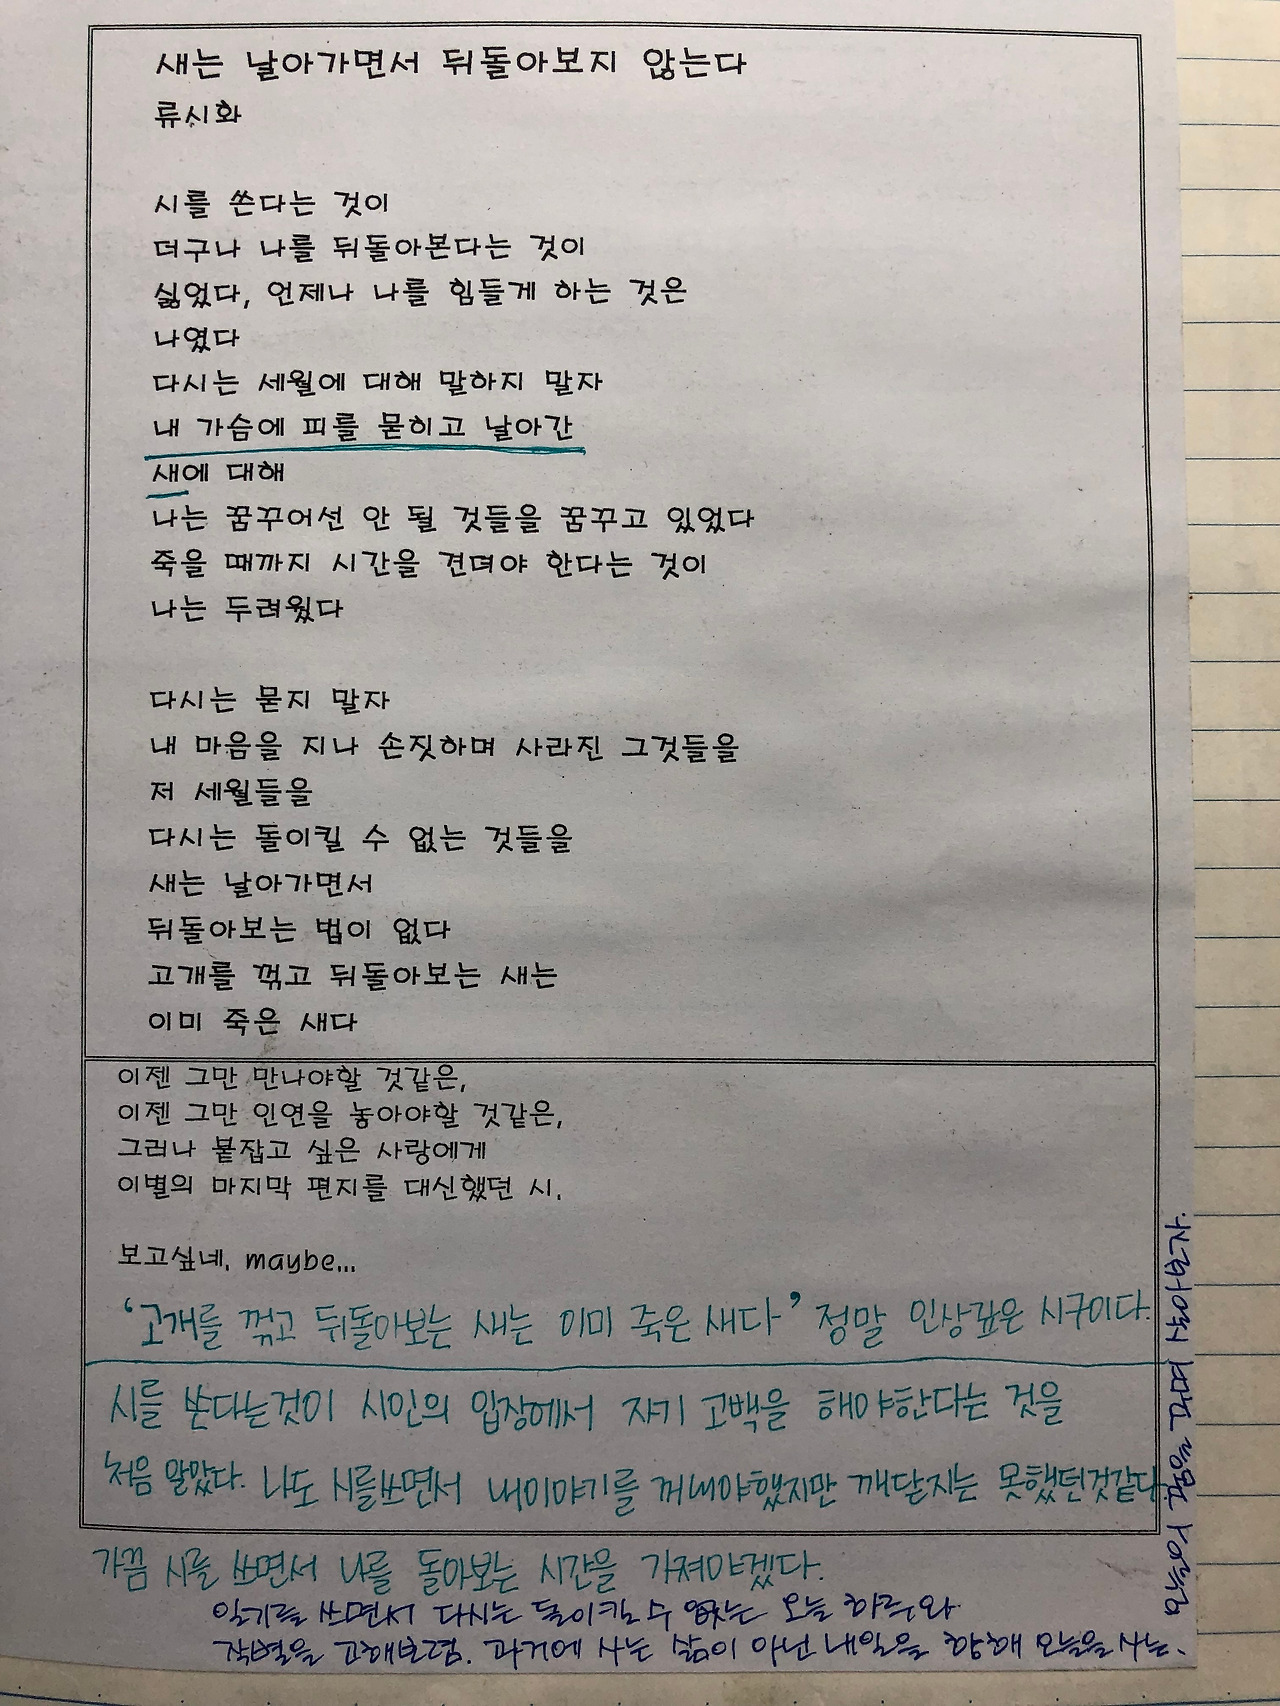 새는 날아가면서 뒤돌아보지 않는다
류시화
시를 쓴다는 것이
더구나 나를 뒤돌아본다는 것이
싫었다, 언제나 나를 힘들게 하는 것은
나였다
다시는 세월에 대해 말하지 말자
내 가슴에 피를 묻히고 날아간
새에 대해
나는 꿈꾸어선 안 될 것들을 꿈꾸고 있었다
죽을 때까지 시간을 견뎌야 한다는 것이
나는 두려웠다
다시는 묻지 말자
내 마음을 지나 손짓하며 사라진 그것들을
저 세월들을
다시는 돌이킬 수 없는 것들을
새는 날아가면서
뒤돌아보는 법이 없다
고개를 꺾고 뒤돌아보는 새는
이미 죽은 새다
이젠 그만 만나야할 것같은,
이젠 그만 인연을 놓아야할 것같은,
그러나 붙잡고 싶은 사랑에게
이별의 마지막 편지를 대신했던 시.
보고싶네. maybe...
'고개를 꺾고 뒤돌아보는 새는 이미 죽은 새다' 정말 인상깊은 시구이다.
시를 쓴다는것이 시인의 입장에서 자기 고백을 해야한다는 것을
처음 알았다. 나도 시를쓰면서 내이야기를 꺼내야했지만 깨닫지는 못했던것같다.
가끔 시를 쓰면서 나를 돌아보는 시간을 가져야겠다.
일기를 쓰면서 다시는 돌이킬 수 없는 오늘 하루와
작별을 고해보렴. 과거에 사는 삶이 아닌 내일을 향해 오늘을 사는.